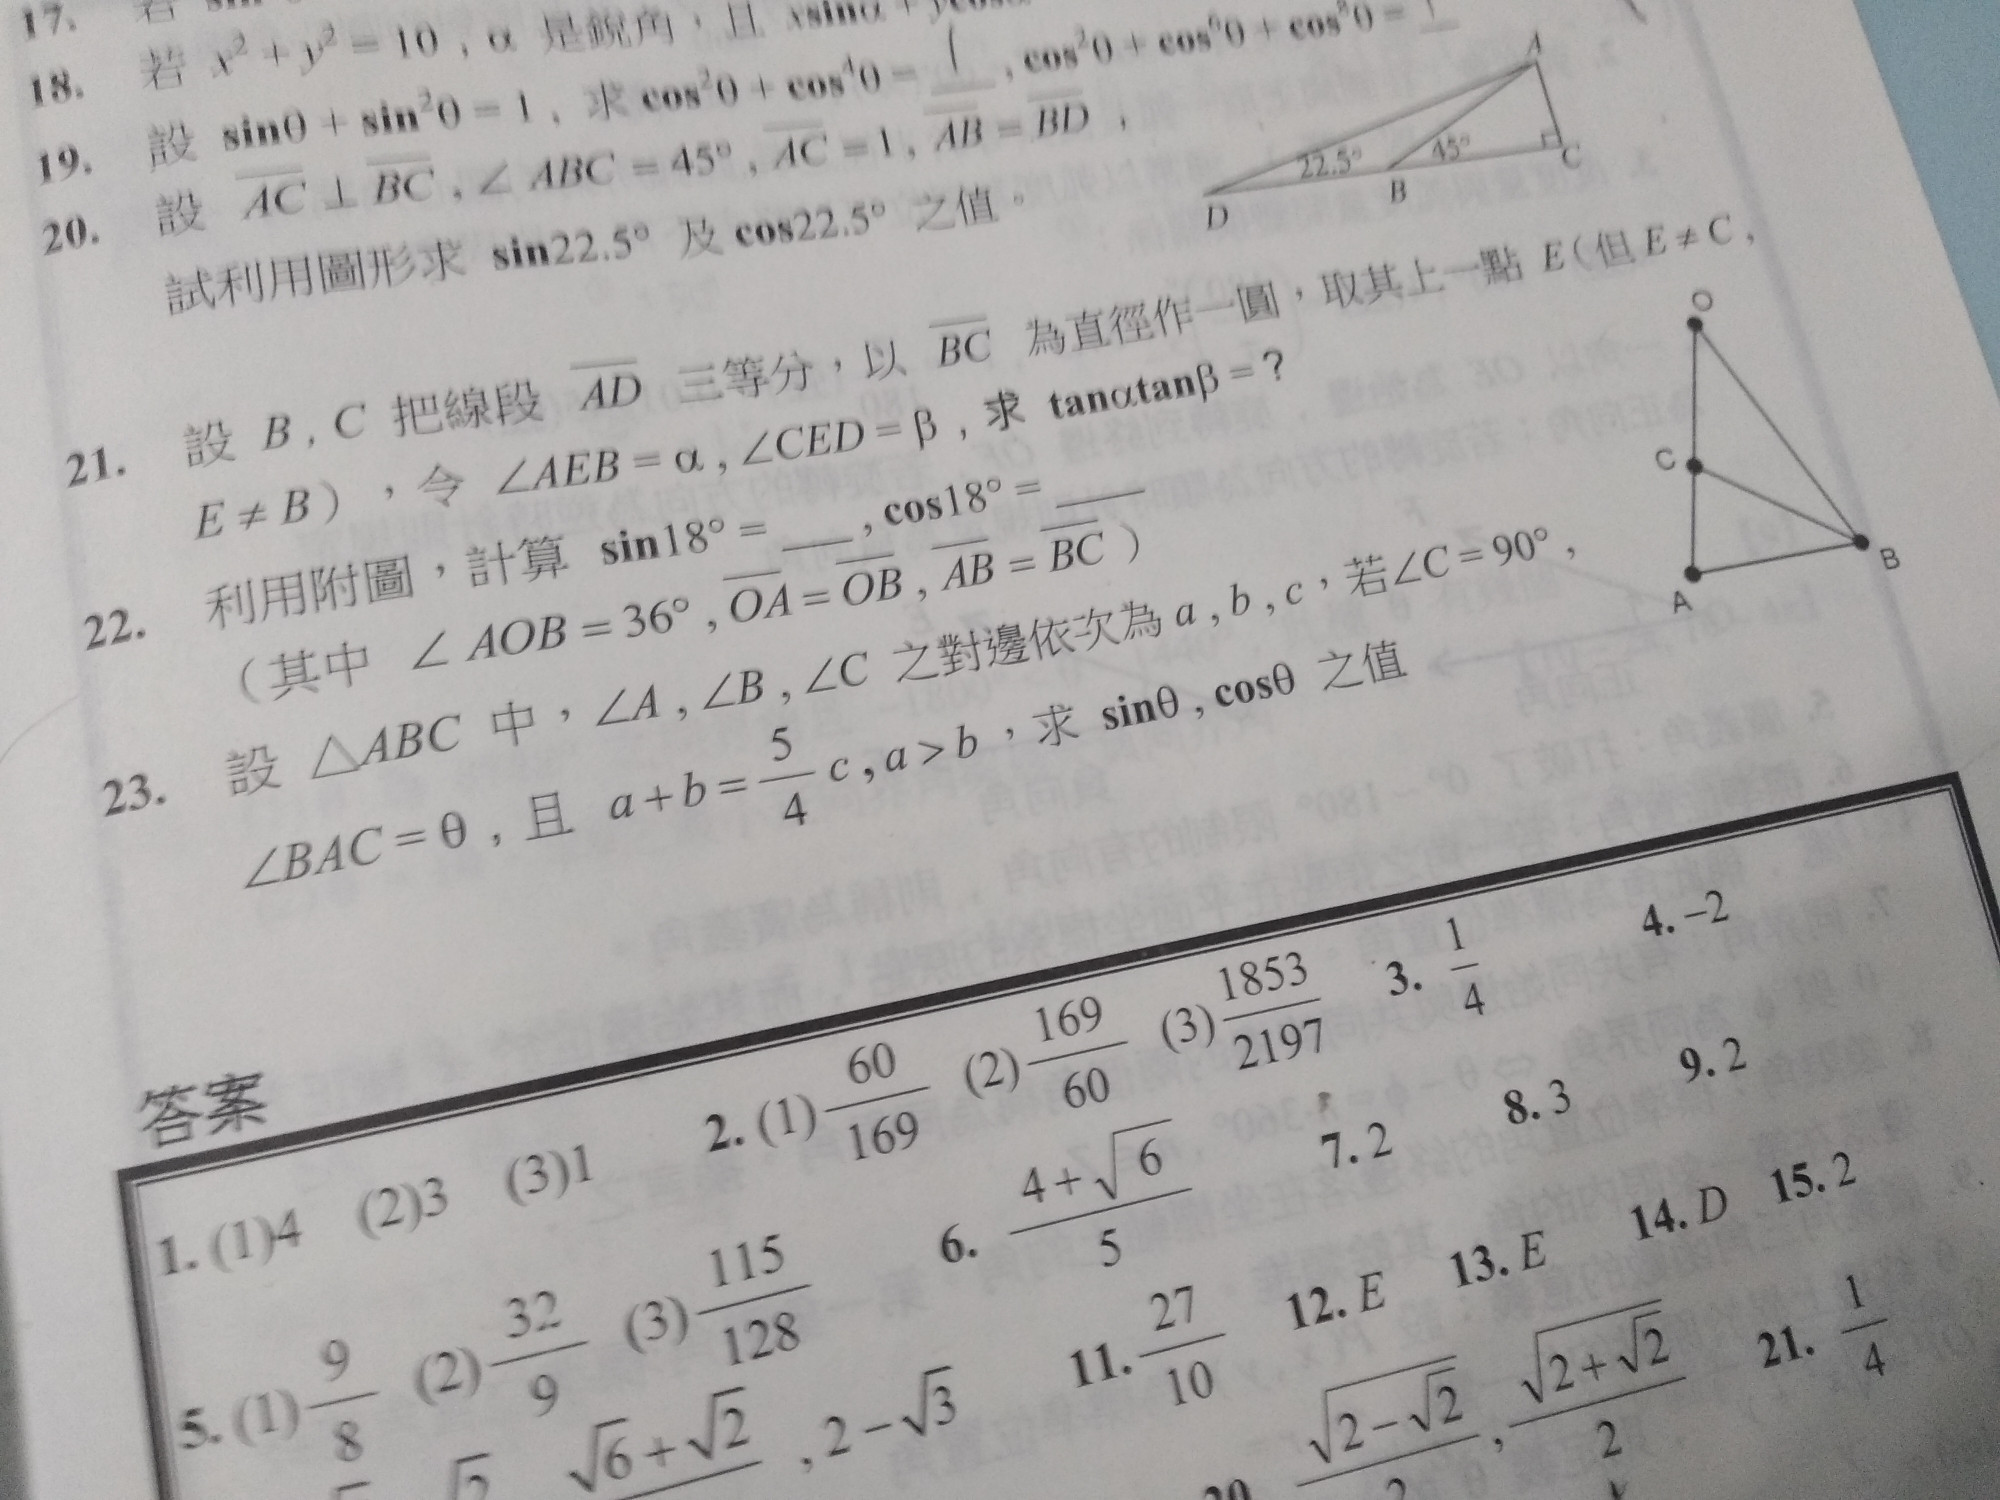 17.
18. 若 x² + y² = 10 , α 是銳角，且 xsinα + ycosα
19. 設 sinθ + sin²θ = 1 , 求 cos²θ + cos⁴θ = 1 , cos²θ + cos⁶θ + cos⁸θ = 1
20. 設 AC ⊥ BC , ∠ ABC = 45° , AC = 1 , AB = BD ,
試利用圖形求 sin22.5° 及 cos22.5° 之值。
A
22.5°
45°
C
B
D
21. 設 B , C 把線段 AD 三等分，以 BC 為直徑作一圓，取其上一點 E（但 E ≠ C ,
E ≠ B），令 ∠AEB = α , ∠CED = β , 求 tanαtanβ = ?
22. 利用附圖，計算 sin18° = ___ , cos18° = ___
（其中 ∠ AOB = 36° , OA = OB , AB = BC ）
O
C
B
A
23. 設 △ABC 中，∠A , ∠B , ∠C 之對邊依次為 a , b , c，若∠C = 90° ,
∠BAC = θ , 且 a + b = 5/4 c , a > b，求 sinθ , cosθ 之值
答案
1. (1)4 (2)3 (3)1 2. (1) 60/169 (2) 169/60 (3) 1853/2197 3. 1/4 4. –2
5. (1) 9/8 (2) 32/9 (3) 115/128 6. (4+√6)/5 7. 2 8. 3 9. 2
√6+√2 , 2–√3 11. 27/10 12. E 13. E 14. D 15. 2
20. √(2–√2)/2 , √(2+√2)/2 21. 1/4